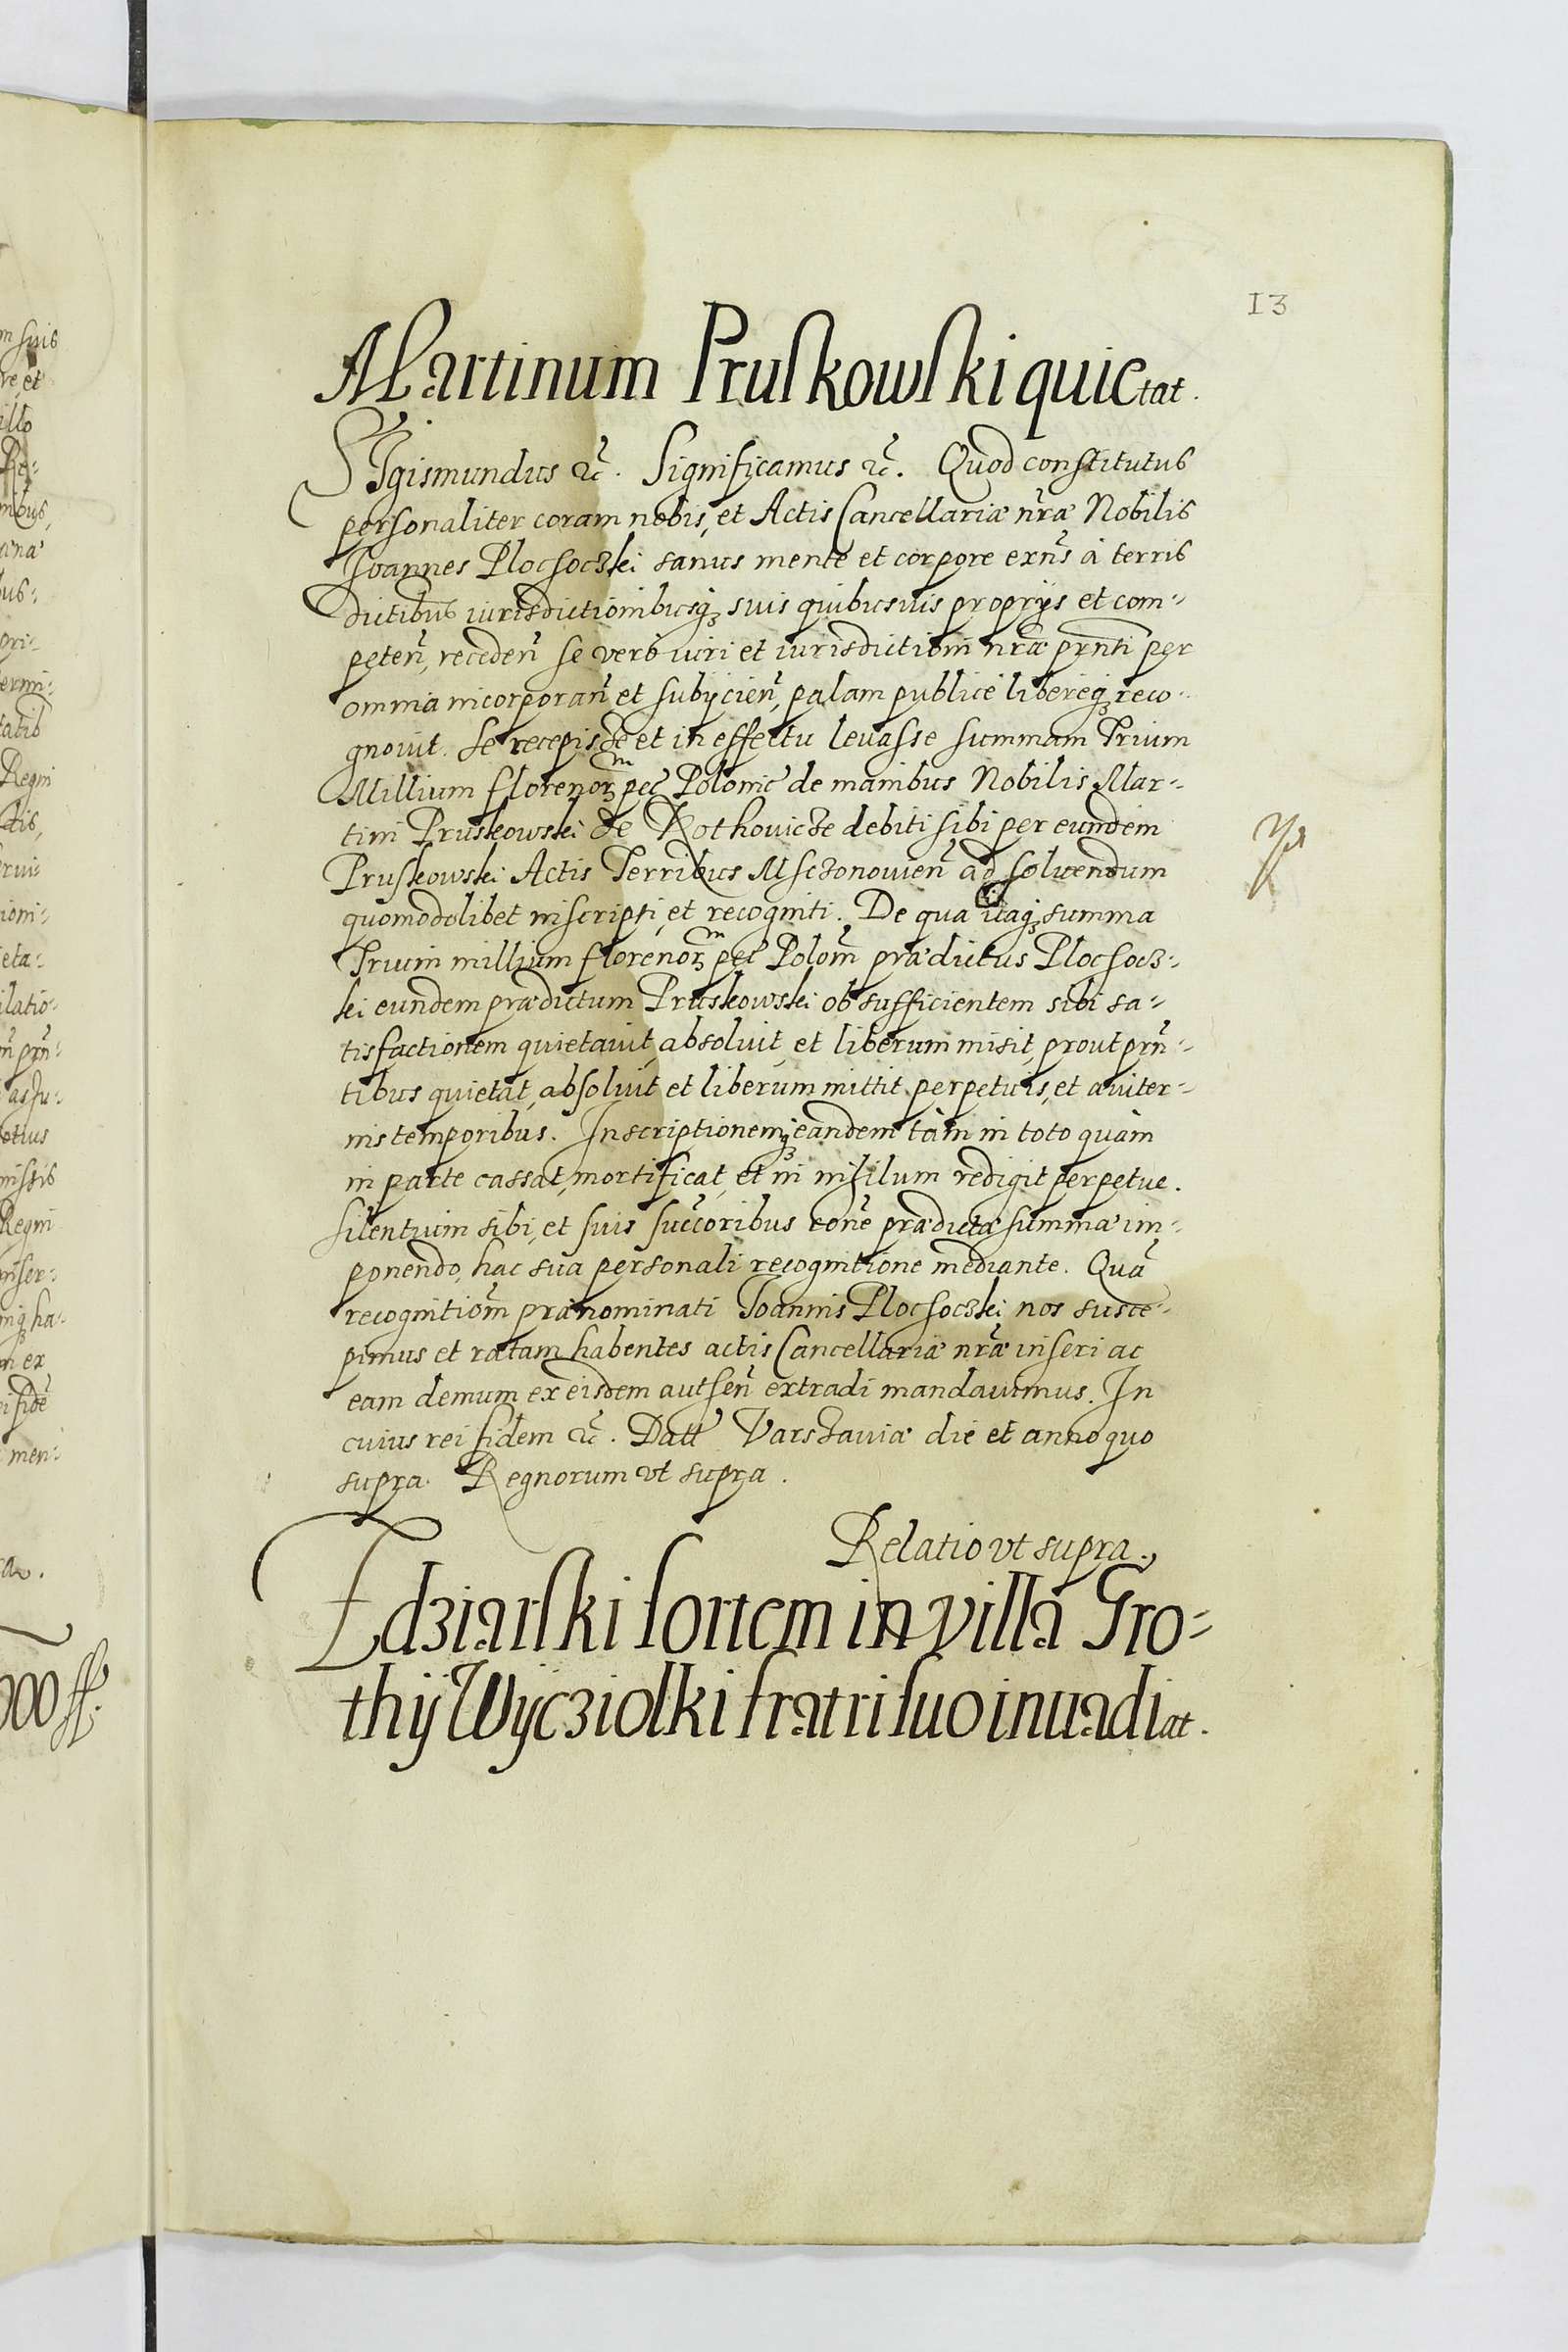 13
Martinum Pruskowski quietat.
Sigismundus &c̃. Significamus &c̃. Quod constitutus
personaliter coram nobis, et Actis Cancellariæ nr̃æ Nobilis
Joannes Plochoczki sanus mente et corpore exñs à terris
dictibus iurisdictionibusq̃ suis quibusuis proprijs et com-
peteñ, recedeñ se verò iuri et iurisdictioni nr̃æ prñti per
omnia incorporañ et subijcieñ, palam publicè liberéq̃ reco-
gnouit. Se recepisse et in effectu leuasse summam Trium
Millium florenorꝫ pec̃ Polonic̃ de manibus Nobilis Mar-
tini Pruskowski de Rothovicze debiti sibi per eundem
Pruskowski Actis Terribus Msczonouieñ ad soluendum
quomodolibet inscripti, et recogniti. De qua itaq̃ summa
Trium millium florenorꝫ pec̃ Poloñ prædictus Plochocz-
ki eundem prædictum Pruskowski ob sufficientem sibi sa-
tisfactionem quietauit, absoluit, et liberum misit, prout prñ-
tibus quietat, absoluit et liberum mittit perpetuis, et æuiter-
nis temporibus. Inscriptionemq̃ eandem tàm in toto quàm
in parte cassat, mortificat, et in nihilum redigit perpetue.
Silentium sibi, et suis succ̃oribus roñe prædictæ summæ im-
ponendo, hac sua personali recognitione mediante. Quã
recognitioñ prænominati Joannis Plochoczki nos susce-
pimus et ratam habentes actis Cancellariæ nr̃æ inseri ac
eam demum ex eisdem autheñ extradi mandauimus. In
cuius rei fidem &c̃. Datt Varschauiæ die et anno quo
supra. Regnorum vt supra.
Relatio vt supra.
Edziarski sortem in villa Gro-
thÿ Wÿcziolki fratri suo inuadiat.